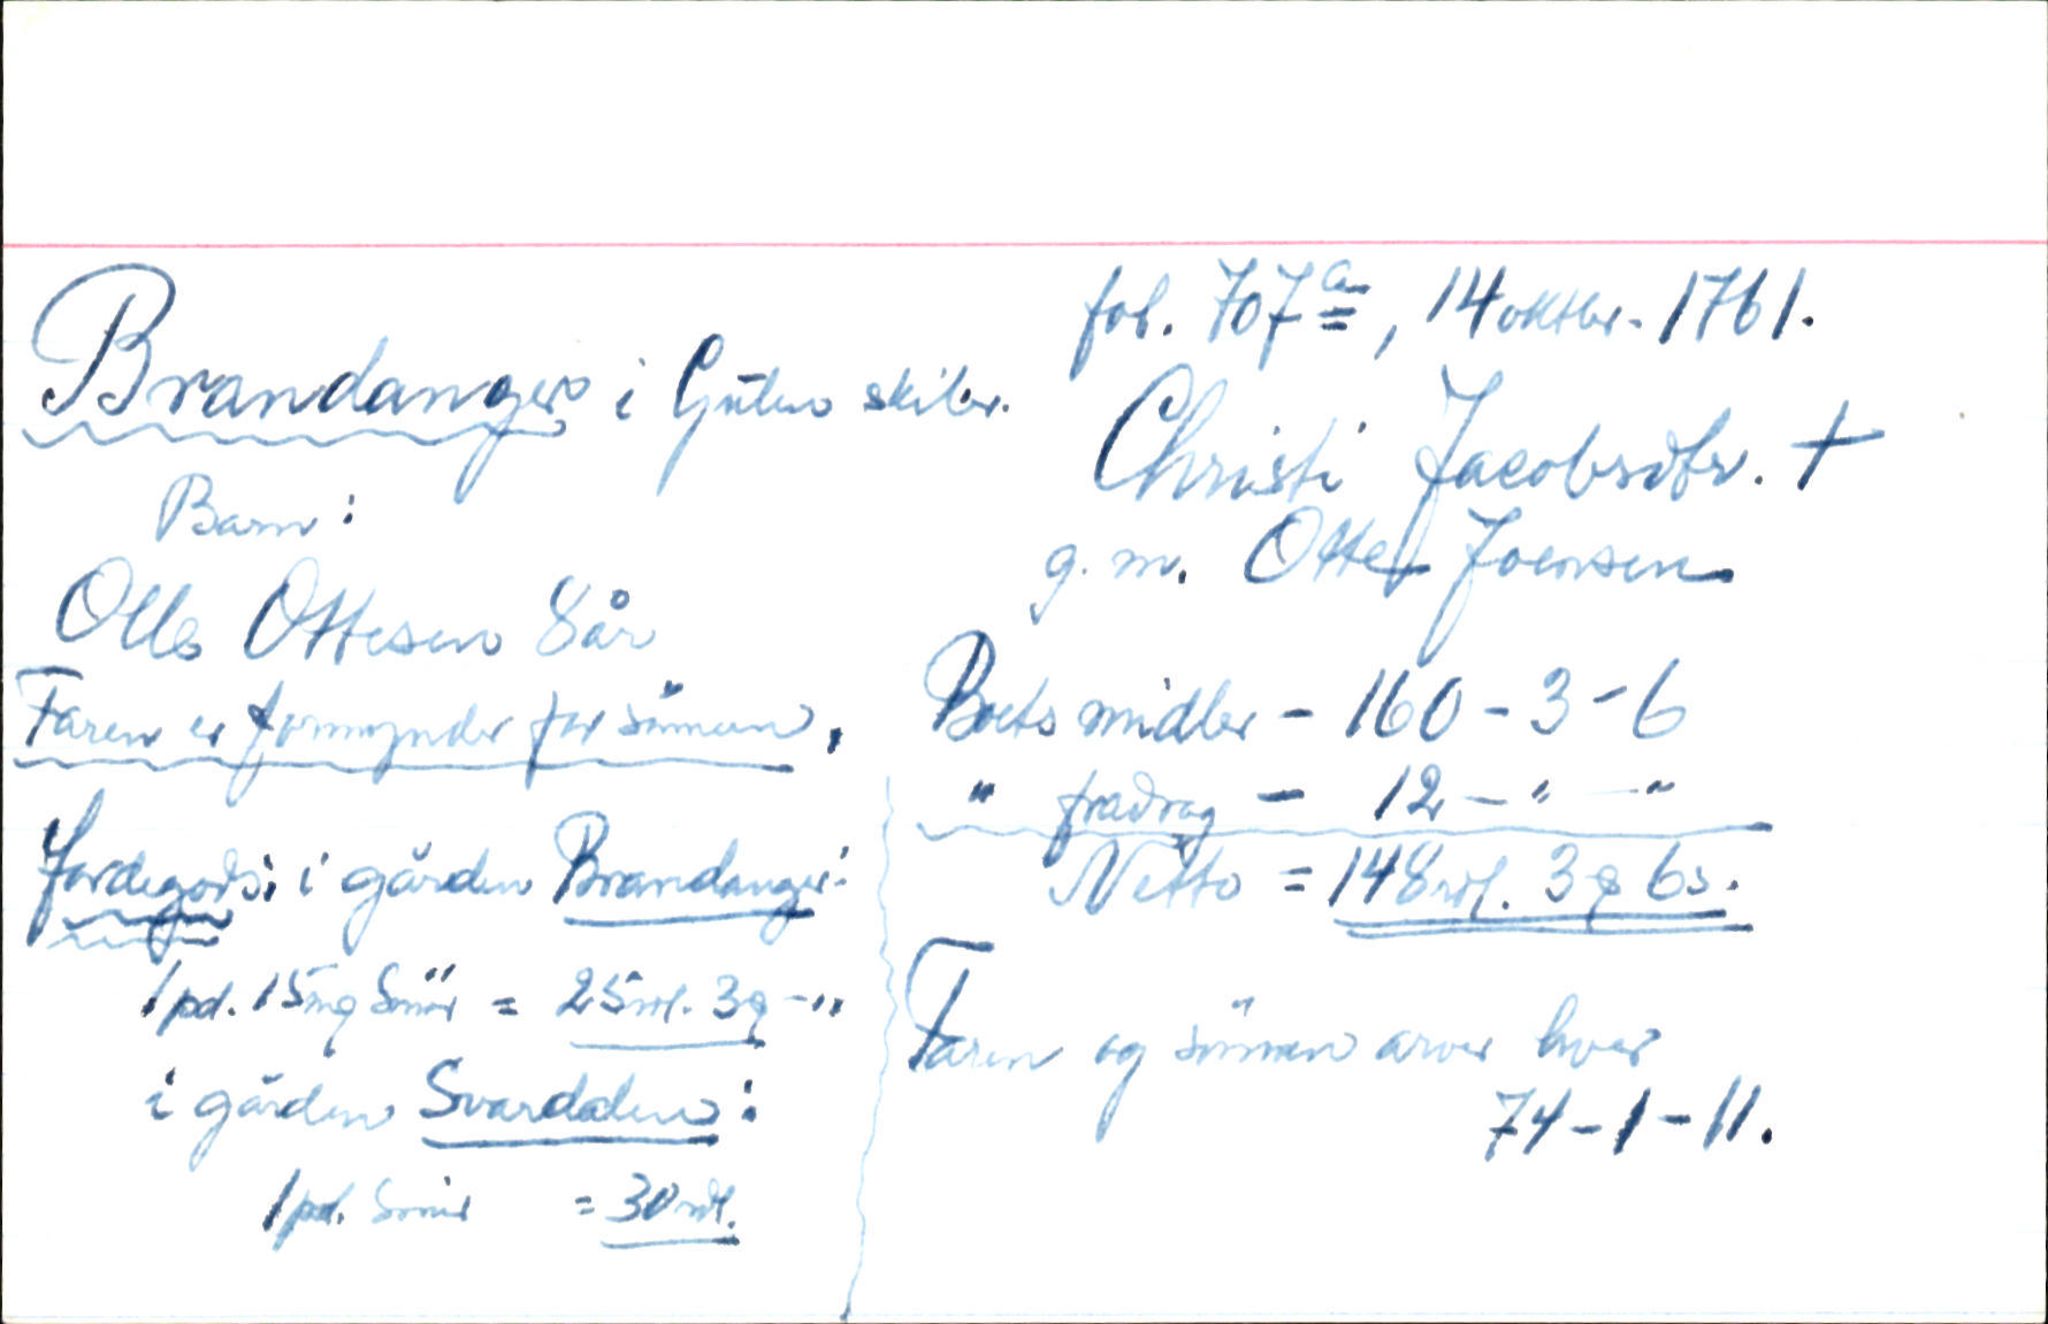 fol. 707a, 14 oktbr. 1761.
Brandanger i Gulen skibr.
Christi Jacobsdtr. †
g. m. Otte Joensen.
Barn:
Olle Ottesen 8 år
Faren er formynder for sönnen.
Jordegods: i gården Brandanger:
1 pd. 15 mg Smör = 25 rdl. 3 q - "
i gården Svardalen:
1 pd. Smör = 30 rdl.
Boets midler - 160 - 3 - 6
" fradrag - 12 - " - "
Netto = 148 rdl. 3 q 6 s.
Faren og sönnen arver hver
74 - 1 - 11.